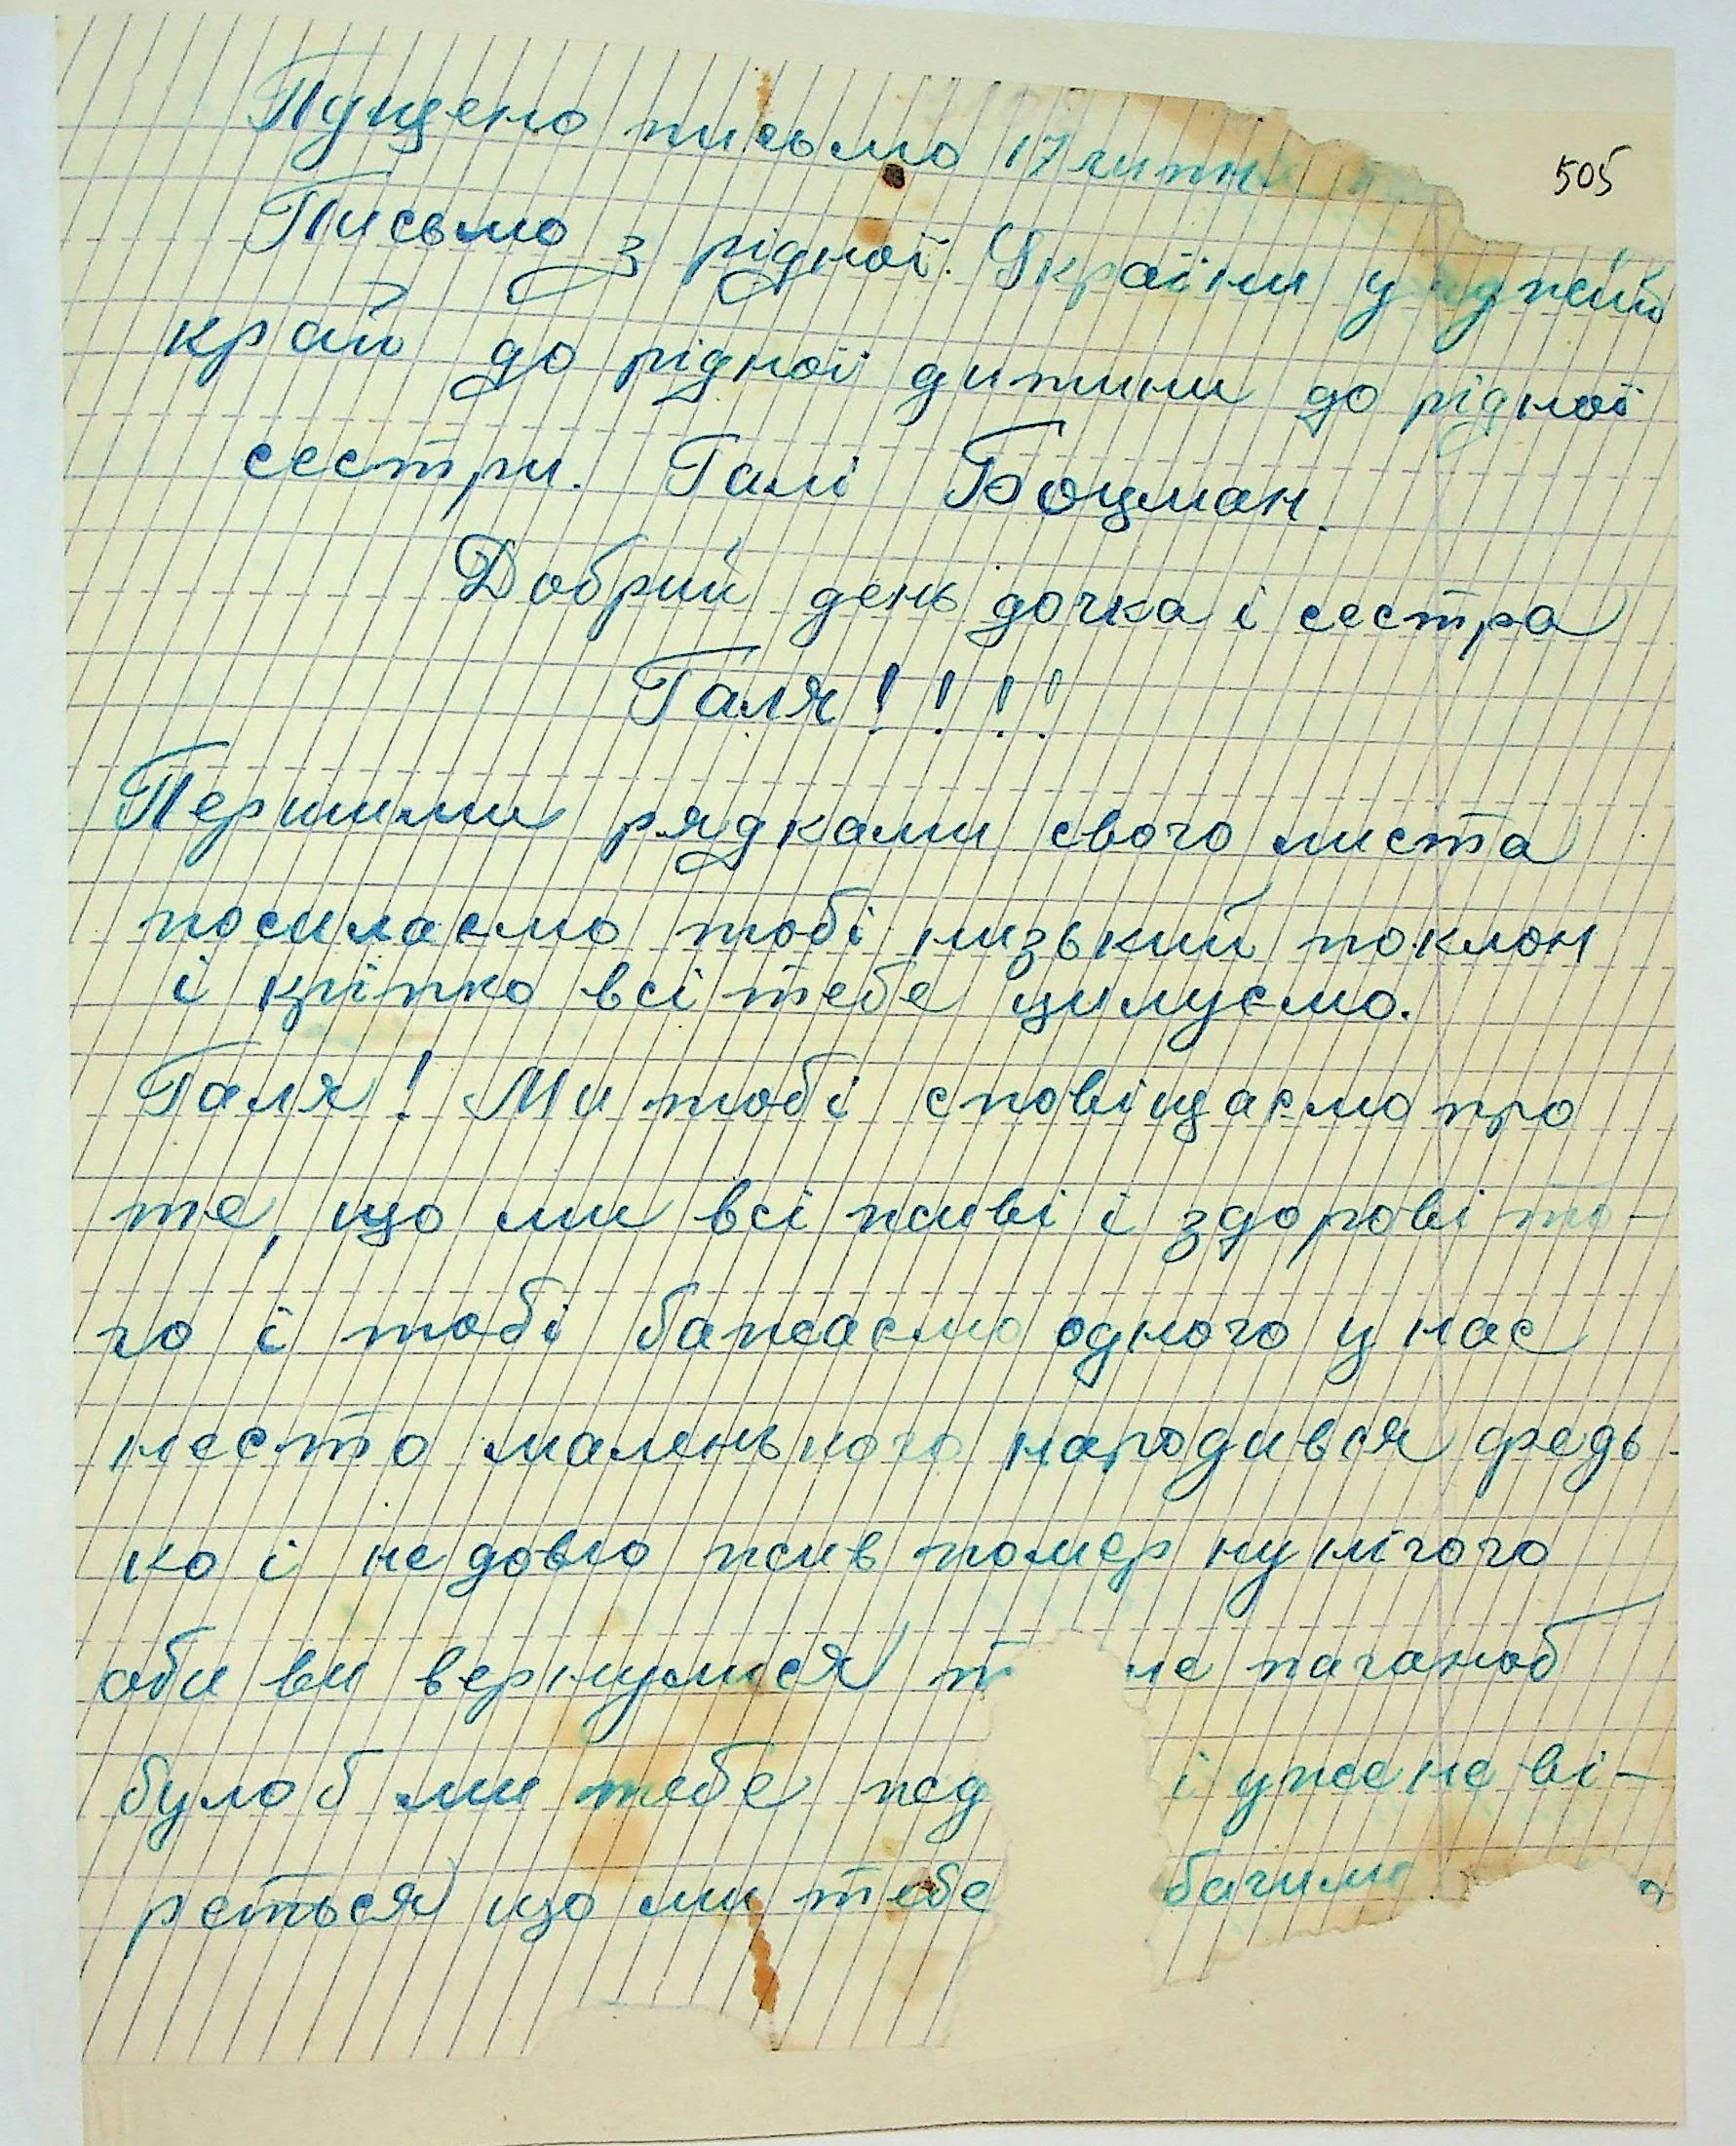 505
Пущено письмо 17 липня
Письмо з рідної. Україіни у чужий
край до рідної дитини до рідної
сестри. Галі Боцман.
Добрий день дочка і сестра
Галя!!!!
Першими рядками свого листа
посилаємо тобі низький поклон
і кріпко всі тебе цилуємо.
Галя! Ми тобі сповіщаємо про
те, що ми всі живі і здорові то-
го і тобі бажаємо одного у нас
нестo маленького народився федь-
ко і не довго жив помер ну нічого
аби ви вернулися не паганоб
булоб ми тебе жд і уже не ві-
реться що ми тебе бачили